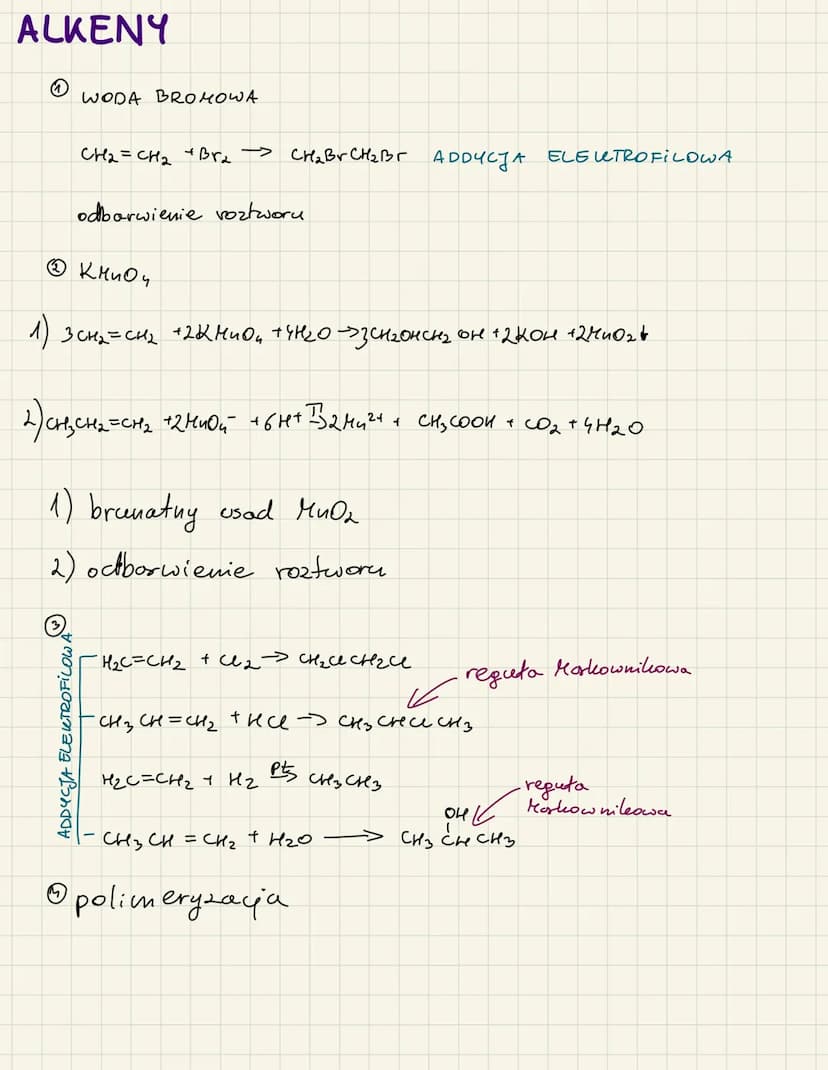 ALKENY
① WODA BROMOWA
CH2=CH2 +Br2 → CH2BrCH2Br ADDYCJA ELEKTROFILOWA
odbarwienie roztworu
② KMnO4
1) 3CH2=CH2 +2KMnO4 +4H2O →3CH2OHCH2OH +2KOH +2MnO2↓
2) CH3CH2=CH2 +2MnO4⁻ +6H+ T→ 2Mn2+ + CH3COOH + CO2 + 4H2O
1) brunatny osad MnO2
2) odbarwienie roztworu
③
ADDYCJA ELEKTROFILOWA
H2C=CH2 + Cl2 → CH2ClCH2Cl
reguła Markownikowa
CH3CH=CH2 + HCl → CH3CHClCH3
H2C=CH2 + H2 Pt→ CH3CH3
reguła
Markownikowa
OH
CH3CH=CH2 + H2O → CH3CHCH3
④ polimeryzacja